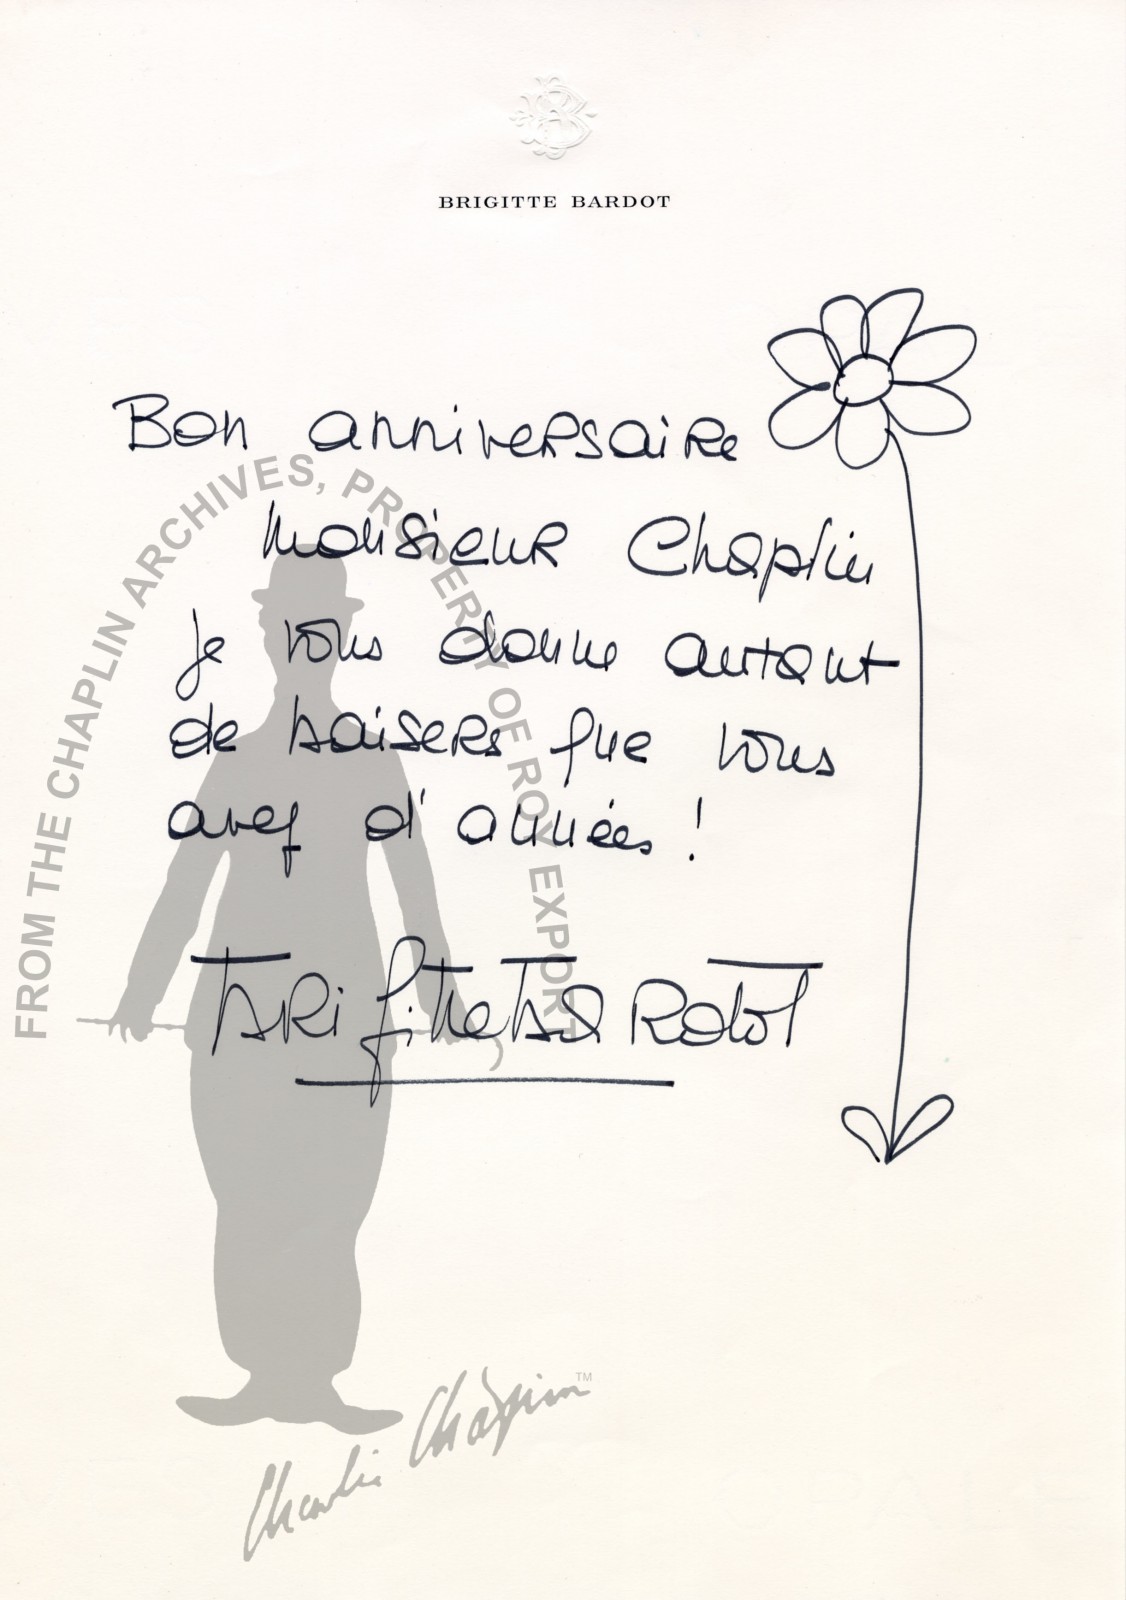 BRIGITTE BARDOT
Bon anniversaire
Monsieur Chaplin
je vous donne autant
de baisers que vous
avez d'années !
Brigitte Bardot
FROM THE CHAPLIN ARCHIVES, PROPERTY OF ROY EXPORT
Charlie Chaplin TM